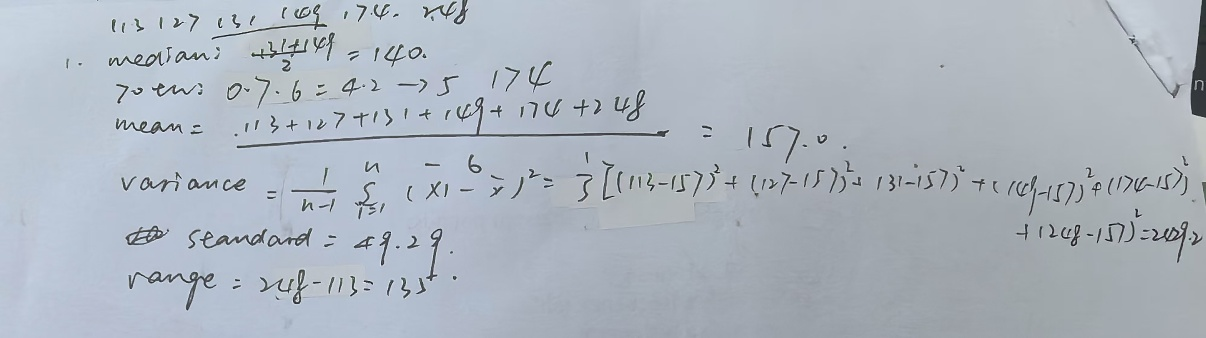 113 127 131 149 174. 248
1. median: 131+149/2 = 140.
70th: 0.7.6 = 4.2 → 5 174
mean = 113+127+131+149+174+248/6 = 157.0.
variance = 1/n-1 Σ i=1 n (xi - x̄)² = 1/5 [(113-157)² + (127-157)² + 131-157)² + (149-157)² + (174-157)²
+ (248-157)² = 2429.2
standard = 49.29.
range = 248-113 = 135.